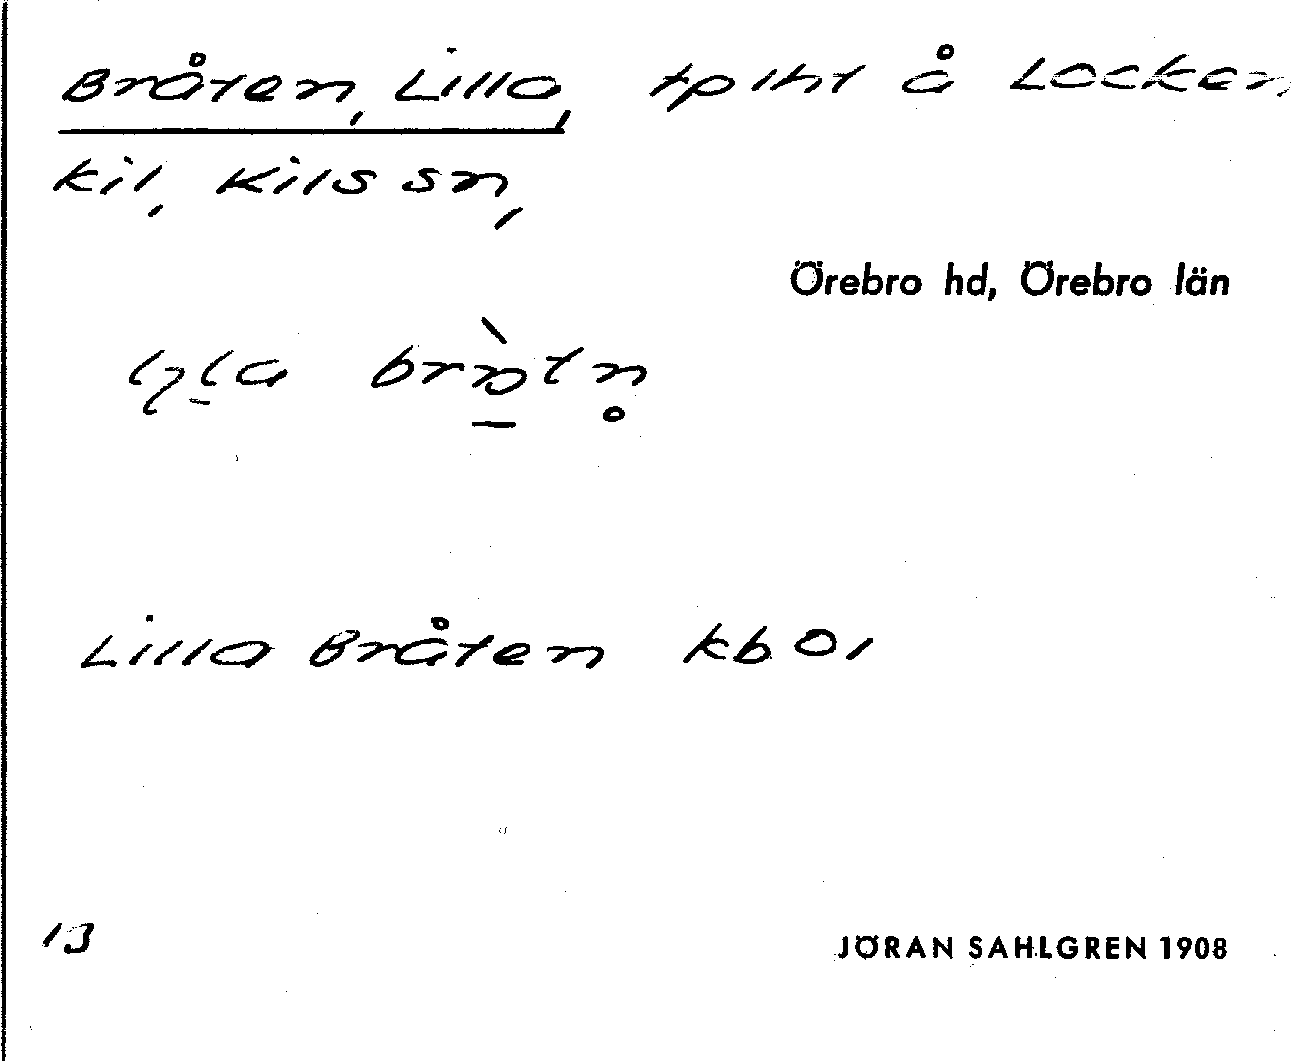 Bråten, Lilla, tplht å Locker
kil, Kils sn,
Örebro hd, Örebro län
Lilla Bråten kb 01
13
JÖRAN SAHLGREN 1908